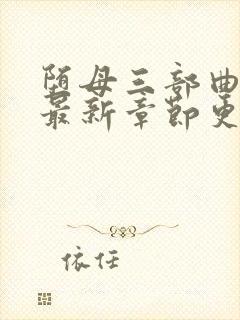 陌母三部曲
最新章节更
依任